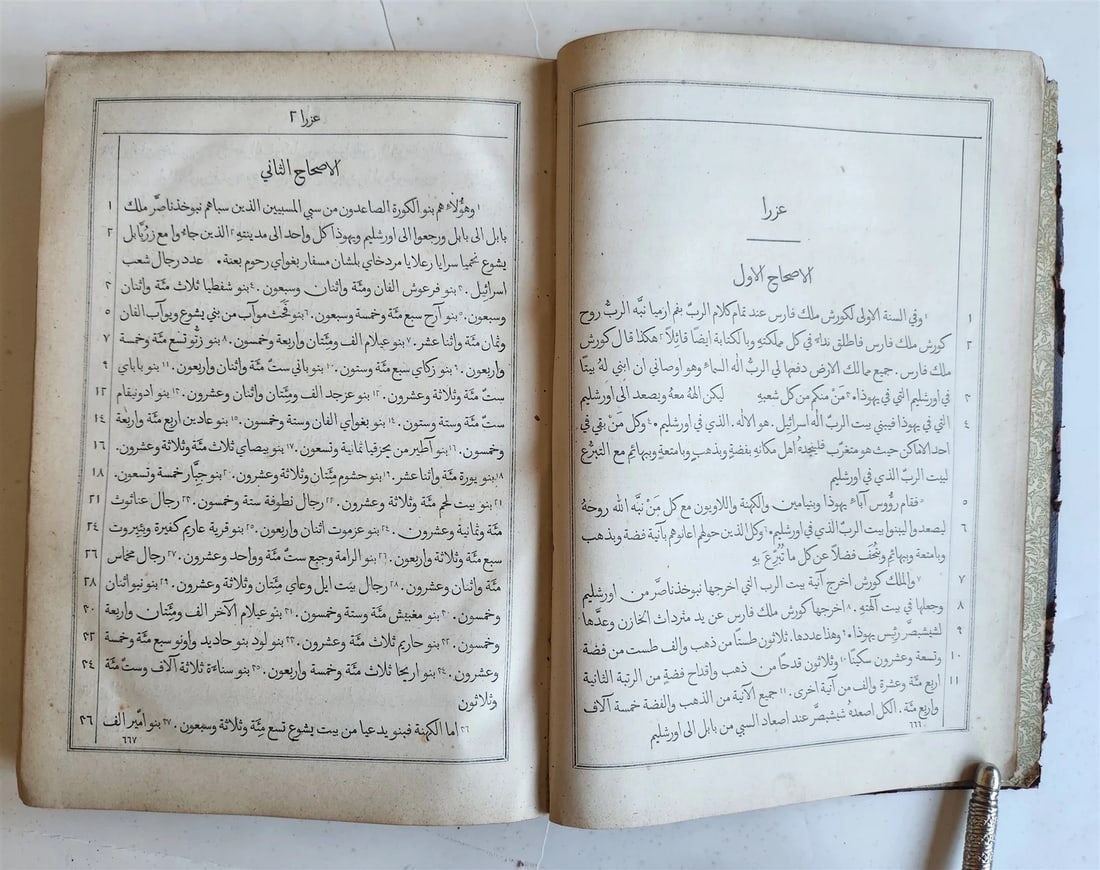 عزرا
الاصحاح الاول
١ ١وفي السنة الاولى لكورش ملك فارس عند تمام كلام الربّ بفم ارميا نبَّه الربُّ روح
٢ كورش ملك فارس فاطلق نداءً في كل مملكته وبالكتابة ايضًا قائلاً ٢هكذا قال كورش
ملك فارس. جميع ممالك الارض دفعها لي الربُّ اله السماء وهو اوصاني ان ابني لهُ بيتًا
٣ في اورشليم التي في يهوذا. ٣مَنْ منكم من كل شعبهِ ليكن الههُ معهُ ويصعد الى اورشليم
٤ التي في يهوذا فيبني بيت الربّ اله اسرائيل. هو الاله. الذي في اورشليم. ٤وكل مَنْ بقي في
احد الاماكن حيث هو متغرّب فلينجدهُ اهل مكانهِ بفضةٍ وبذهبٍ وبامتعةٍ وببهائم مع التبرُّع
لبيت الربّ الذي في اورشليم
٥ ٥فقام رؤُوس آباءِ يهوذا وبنيامين والكهنة واللاويون مع كل مَنْ نبَّه الله روحهُ
٦ ليصعدوا ليبنوا بيت الربّ الذي في اورشليم. ٦وكل الذين حولهم اعانوهم بآنية فضة وبذهب
وبامتعة وببهائم وبتحف فضلاً عن كل ما تُبُرِّعَ بهِ
٧ ٧والملك كورش اخرج آنية بيت الرب التي اخرجها نبوخذناصَّر من اورشليم
٨ وجعلها في بيت آلهتهِ. ٨اخرجها كورش ملك فارس عن يد مثرداث الخازن وعدَّها
٩ لشيشبصَّر رئيس يهوذا. ٩وهذا عددها. ثلاثون طستًا من ذهب والف طست من فضة
١٠ وتسعة وعشرون سكينًا ١٠وثلاثون قدحًا من ذهب واقداح فضةٍ من الرتبة الثانية
١١ اربع مئة وعشرة والف من آنية اخرى. ١١جميع الآنية من الذهب والفضة خمسة آلاف
واربع مئة. الكل اصعدهُ شيشبصَّر عند اصعاد السبي من بابل الى اورشليم
٦٦٦
عزرا ٢
الاصحاح الثاني
١وهؤُلاءِ هم بنو الكورة الصاعدون من سبي المسبيين الذين سباهم نبوخذناصَّر ملك ١
بابل الى بابل ورجعوا الى اورشليم ويهوذا كل واحد الى مدينتهِ ٢الذين جاءُوا مع زرُبَّابل ٢
يشوع نحميا سرايا رعلايا مردخاي بلشان مسفار بغواي رحوم بعنة. عدد رجال شعب
اسرائيل. ٣بنو فرعوش الفان ومئة واثنان وسبعون. ٤بنو شفطيا ثلاث مئة واثنان ٣
وسبعون. ٥بنو آرح سبع مئة وخمسة وسبعون. ٦بنو فَحَث موآب من بني يشوع ويوآب الفان ٥
وثمان مئة واثنا عشر. ٧بنو عيلام الف ومئتان واربعة وخمسون. ٨بنو زتُّو تسع مئة وخمسة ٧
واربعون. ٩بنو زكاي سبع مئة وستون. ١٠بنو باني ستّ مئة واثنان واربعون. ١١بنو باباي ٩
ستّ مئة وثلاثة وعشرون. ١٢بنو عزجد الف ومئتان واثنان وعشرون. ١٣بنو ادونيقام ١٢
ستّ مئة وستة وستون. ١٤بنو بغواي الفان وستة وخمسون. ١٥بنو عادين اربع مئة واربعة ١٤
وخمسون. ١٦بنو آطير من يحزقيا ثمانية وتسعون. ١٧بنو بيصاي ثلاث مئة وثلاثة وعشرون. ١٦
١٨بنو يورة مئة واثنا عشر. ١٩بنو حشوم مئتان وثلاثة وعشرون. ٢٠بنو جبَّار خمسة وتسعون. ١٨
٢١بنو بيت لحم مئة وثلاثة وعشرون. ٢٢رجال نطوفة ستة وخمسون. ٢٣رجال عناثوث ٢١
مئة وثمانية وعشرون. ٢٤بنو عزموت اثنان واربعون. ٢٥بنو قرية عاريم كفيرة وبئيروت ٢٤
سبع مئة وثلاثة واربعون. ٢٦بنو الرامة وجبع ستّ مئة وواحد وعشرون. ٢٧رجال مخماس ٢٦
مئة واثنان وعشرون. ٢٨رجال بيت ايل وعاي مئتان وثلاثة وعشرون. ٢٩بنو نبو اثنان ٢٨
وخمسون. ٣٠بنو مغبيش مئة وستة وخمسون. ٣١بنو عيلام الآخر الف ومئتان واربعة ٣٠
وخمسون. ٣٢بنو حاريم ثلاث مئة وعشرون. ٣٣بنو لود بنو حاديد واونو سبع مئة وخمسة ٣٢
وعشرون. ٣٤بنو اريحا ثلاث مئة وخمسة واربعون. ٣٥بنو سناءَة ثلاثة آلاف وستّ مئة ٣٤
وثلاثون
٣٦اما الكهنة فبنو يدعيا من بيت يشوع تسع مئة وثلاثة وسبعون. ٣٧بنو امّير الف ٣٦
٦٦٧